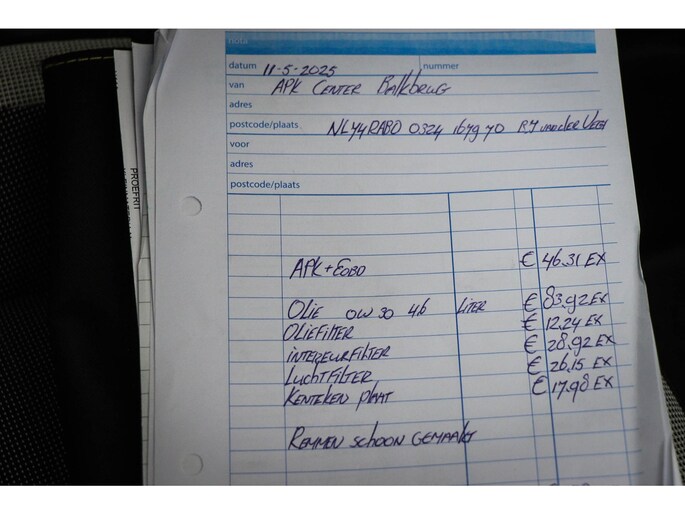 nota
datum 11-5-2025 nummer
van APK CENTER Balkbrug
adres
postcode/plaats NL44RABO 0324 1679 70 R.J van der Veen
voor
adres
postcode/plaats
APK + EOBD € 46.31 EX
OLIE 0W30 46 LITER € 83.92 EX
OLIEFILTER € 12.24 EX
INTERIEURFILTER € 28.92 EX
LUCHTFILTER € 26.15 EX
KENTEKEN PLAAT € 17.98 EX
REMMEN SCHOON GEMAAKT
PROEFRIT